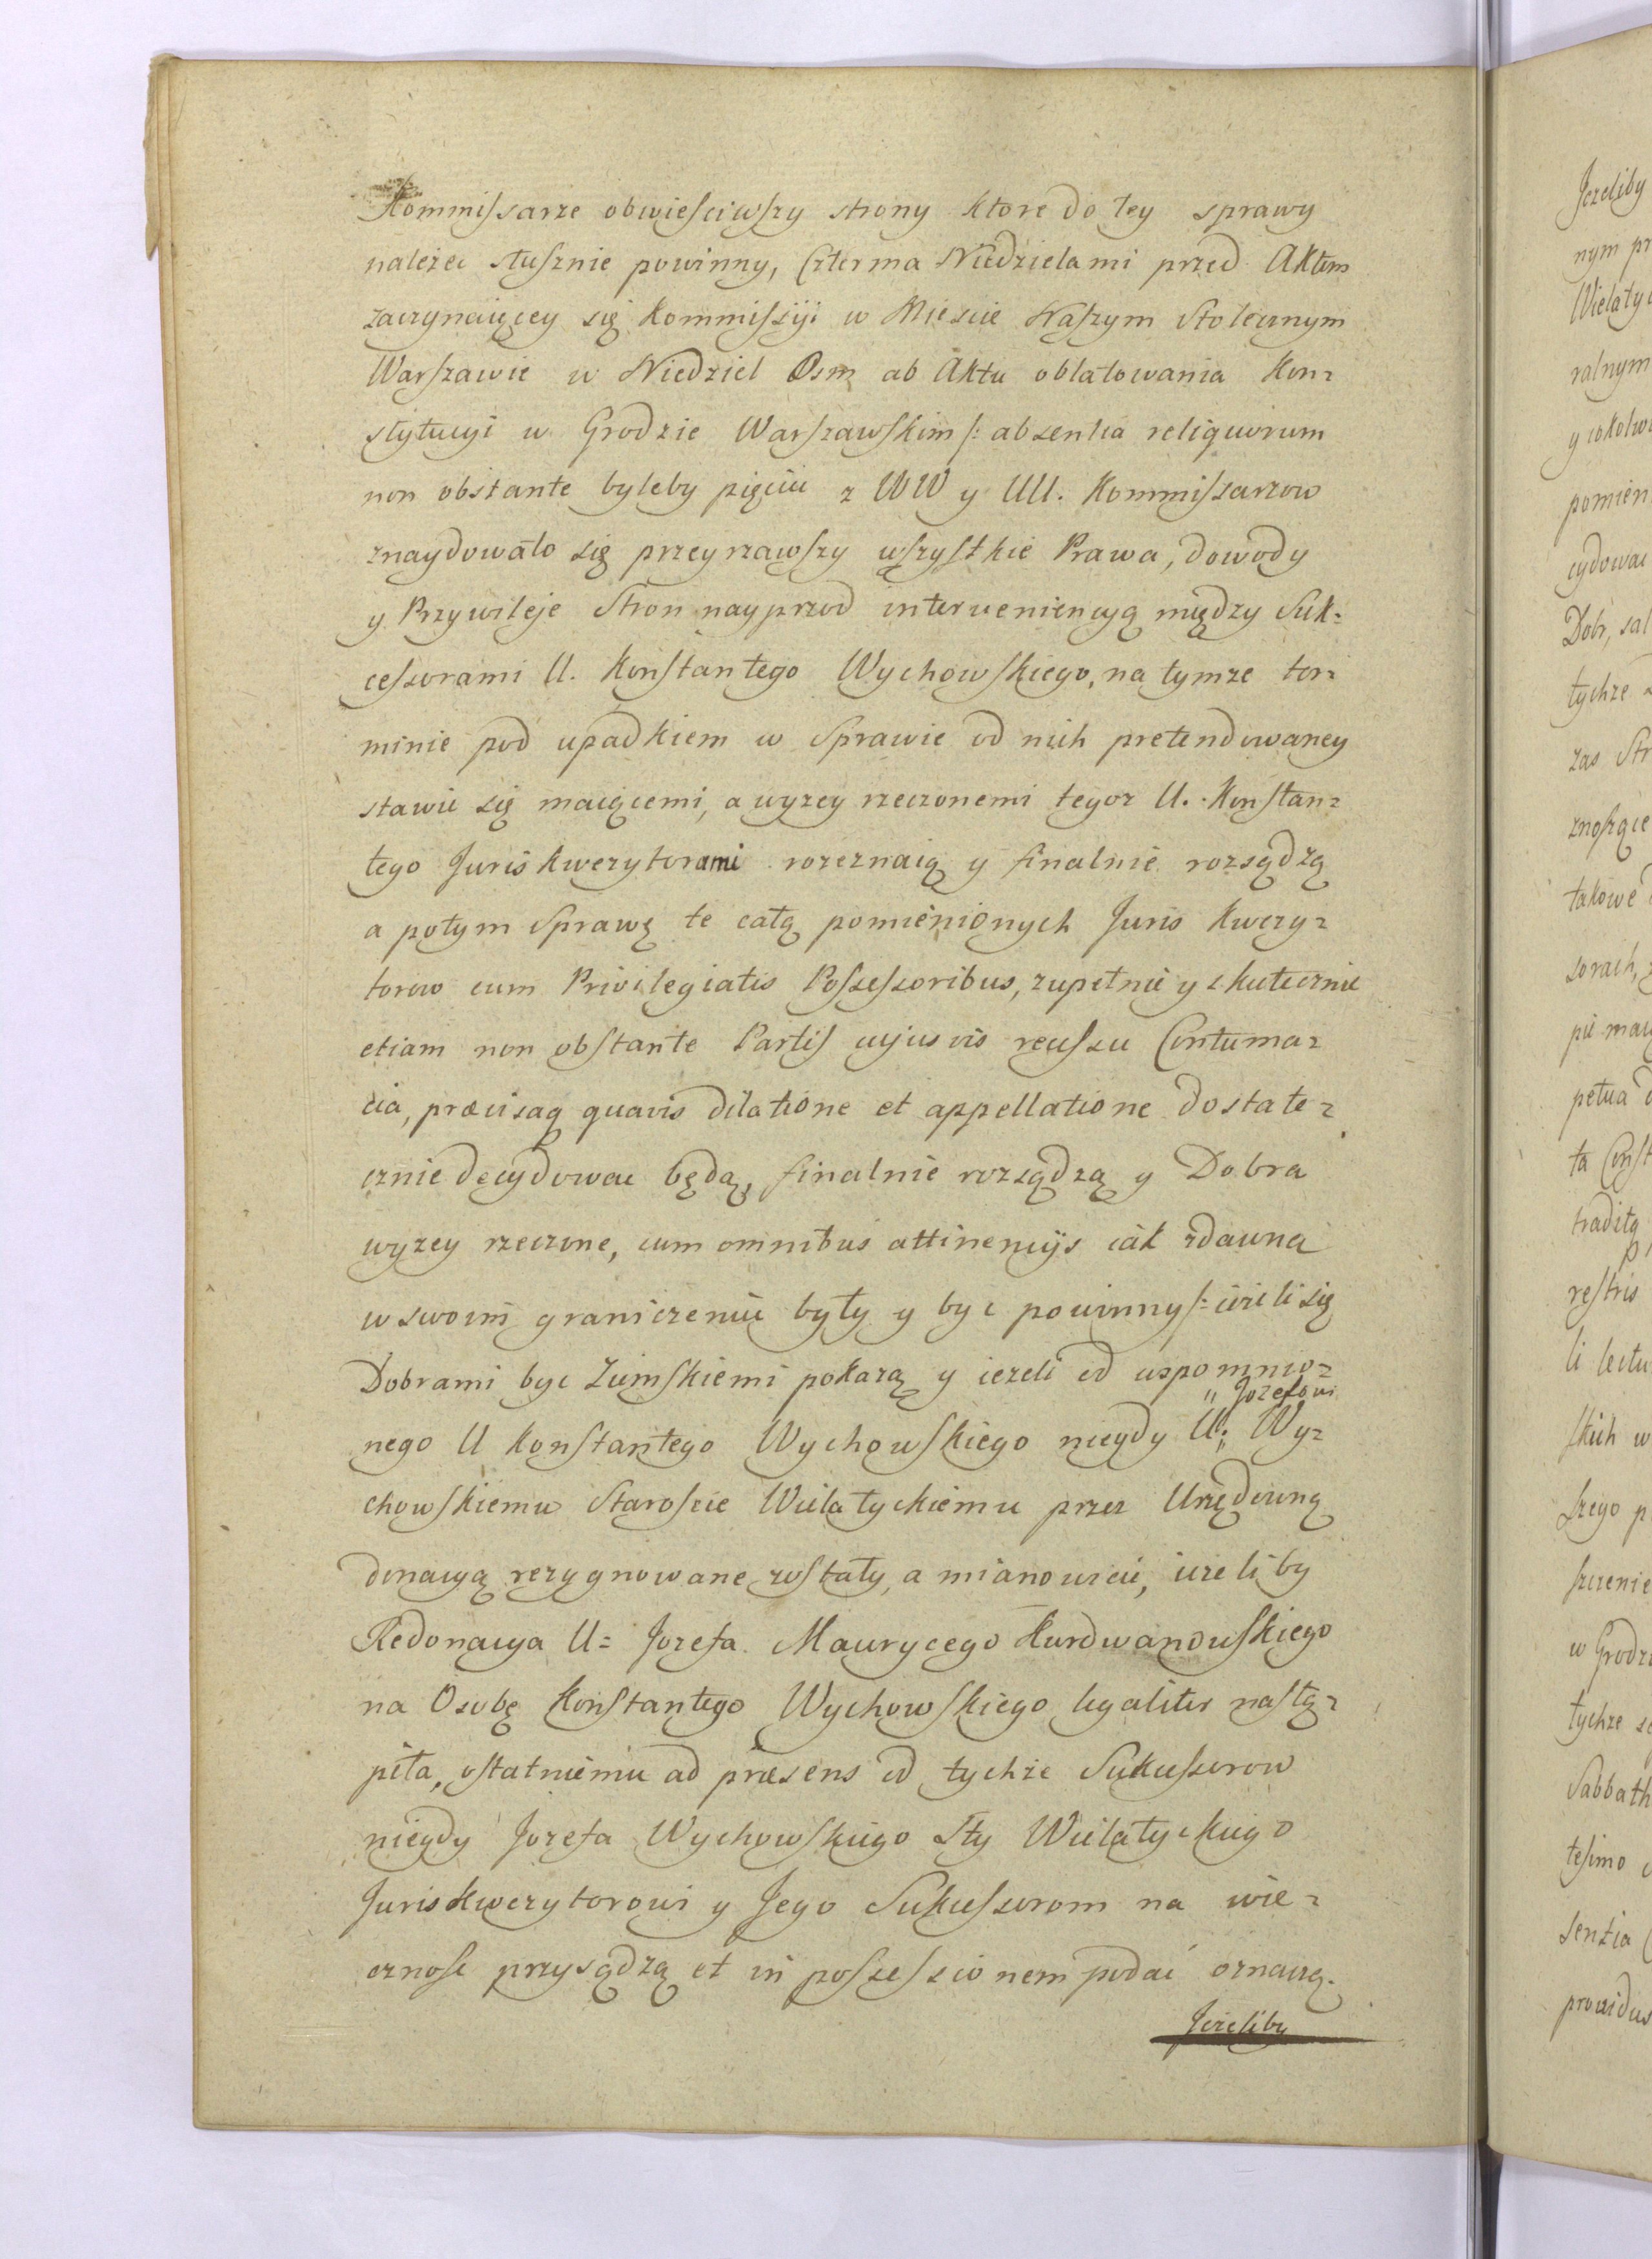 Kommissarze obwiesciwszy strony ktore do tey sprawy
należec słusznie powinny, Czterma Niedzielami przed Aktem
zaczynaiącey się Kommissyi w Miescie Naszym Stołecznym
Warszawie w Niedziel Osm ab Aktu oblatowania Kon=
stytucyi w Grodzie Warszawskim /: absentia reliquorum
non obstante byleby pięciu z WW y UU. Kommissarzow
znaydowało się przeyrzawszy wszystkie Prawa, dowody
y Przywileje Stron nayprzod interveniencyą między Suk=
cessorami U. Konstantego Wychowskiego, na tymze ter=
minie pod upadkiem w Sprawie od nich pretendowaney
stawic się maiącemi, a wyzey rzeczonemi tegoz U. Konstan=
tego Juris kwerytorami rozeznaią y finalnie rozsądzą
a potym Sprawę te całą pomienionych Juris Kwery=
torow cum Privilegiatis Possessoribus, zupełnie y skutecznie
etiam non obstante Partis cujusvis recessu Contuma=
cia, præcisaq quavis dilatione et appellatione dostate=
cznie decydowac będą, finalnie rozsądzą y Dobra
wyzey rzeczone, cum omnibus attinencijs iak zdawna
w swoim graniczeniu były y byc powinny /: ieżeli się
Dobrami byc Ziemskiemi pokazą y iezeli od wspomnio=
nego U Konstantego Wychowskiego niegdy U; " Jozefowi Wy=
chowskiemu Staroscie Wielatyckiemu przez Urzędowną
donacyą rezygnowane zostały, a mianowicie, iezeliby
Redonacya U= Jozefa Maurycego Kurdwanowskiego
na Osobę Konstantego Wychowskiego legaliter nastą=
piła, ostatniemu ad præsens od tychże Sukcessorow
niegdy Jozefa Wychowskiego Sty Wielatyckiego
Juriskwerytorowi y Jego Sukcessorom na wie=
cznosc przysądzą et in possessionem podać oznaczą.
Jeżeliby
Jezeliby
nym pr
Wielatyc
ralnym
pomien
cydowac
Dobr, sal
tychze
zas Str
znoszące
takowe
sorach,
petua
ta Const
tradita
restris
li lectu
skich w
szego p
szczenie
w Grodz
tychze
Sabbath
tesimo
sentia